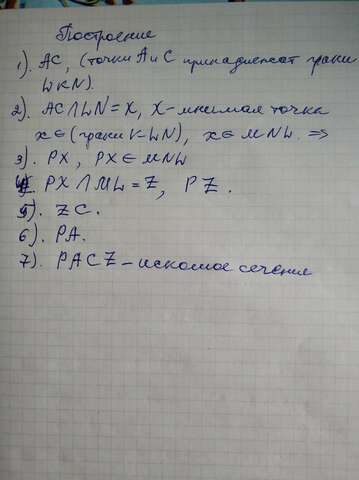 Построение
1). AC, (точки A и C принадлежат грани
LKN).
2). AC∩LN=X, X-мнимая точка
x∈(грани KLN), x∈MNL. ⇒
3). PX, PX∈MNL
4). PX∩ML=Z, PZ.
5). ZC.
6). PA.
7). PACZ-искомое сечение